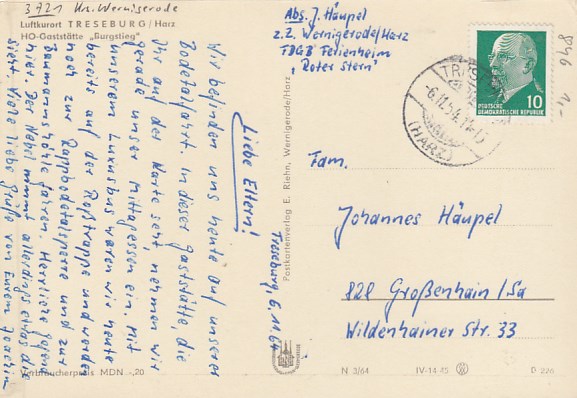 3721 Krs. Wernigerode
Luftkurort TRESEBURG / Harz
HO-Gaststätte „Burgstieg“
Treseburg, 6.11.64
Liebe Eltern!
Wir befinden uns heute auf unserer
Bodetalfahrt in dieser Gaststätte, die
Ihr auf der Karte seht, nehmen wir
gerade unser Mittagessen ein. Mit
unserem Luxusbus waren wir heute
bereits auf der Roßtrappe und werden
noch zur Rappbodetalsperre und zur
Baumannshöhle fahren. Herrliche Gegend
hier. Der Nebel nimmt allerdings etwas die
Sicht. Viele liebe Grüße von Eurem Joachim
Verbraucherpreis MDN -,20
Postkartenverlag E. Riehn, Wernigerode/Harz
Abs. J. Häupel
z.Z. Wernigerode/Harz
FDGB Ferienheim
„Roter Stern“
DEUTSCHE
DEMOKRATISCHE REPUBLIK
10
-6.11.64
(HARZ)
846
1,-
Fam.
Johannes Häupel
828 Großenhain / Sa
Wildenhainer Str. 33
N 3/64
IV-14-45
D 226